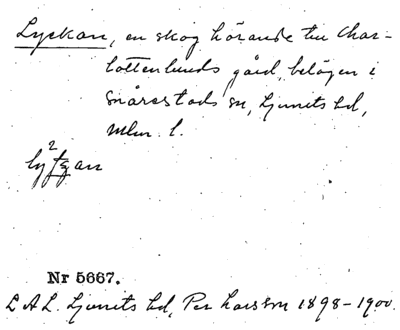 Lyckan, en skog hörande till Char-
lottenlunds gård, belägen i
Snårestads sn, Ljunits hd,
Mlm. l.
Nr 5667.
L A L. Ljunits hd, Per Larsson 1898-1900.